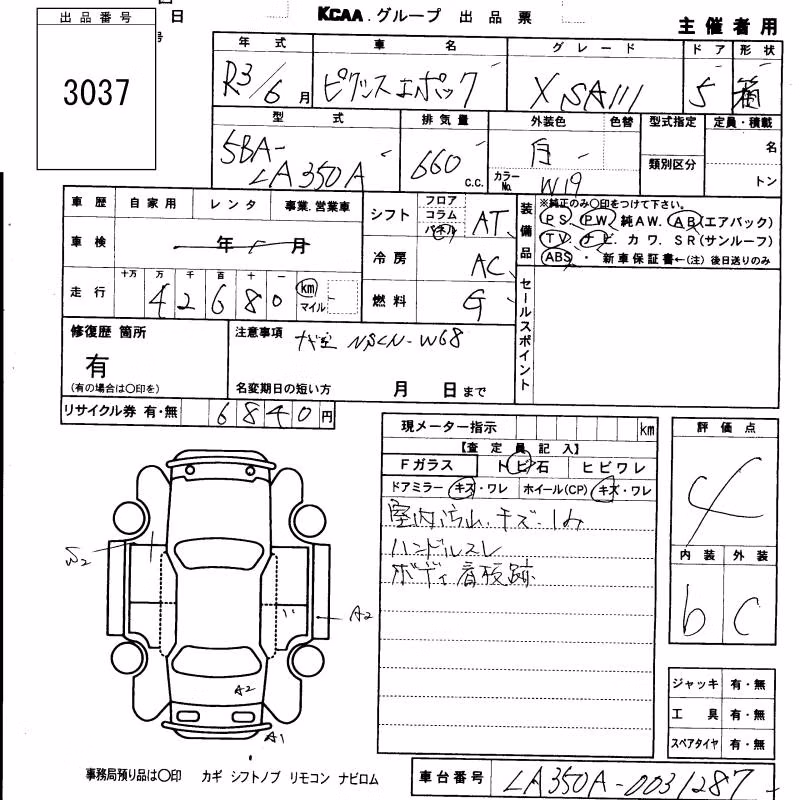 日
号
KCAA.グループ 出品票
主催者用
出品番号
3037
年式 車名 グレード ドア 形状
R3/6月 ピクシスエポック X SAIII 5 箱
型式 排気量 外装色 色替 型式指定 定員・積載
5BA-LA350A 660 c.c. 白 カラーNo. W19 類別区分 名 トン
車歴 自家用 レンタ 事業.営業車
車検 年 月
走行 十万 万 千 百 十 一
42680 km マイル
シフト フロア コラム パネル AT
冷房 AC
燃料 G
装備品
※純正のみ○印をつけて下さい。
PS PW 純AW. AB(エアバック)
TV. ナビ. カワ. SR(サンルーフ)
ABS ・新車保証書←(注)後日送りのみ
セールスポイント
修復歴 箇所
有
(有の場合は○印を)
注意事項
ナビ NSCN-W68
名変期日の短い方 月 日まで
リサイクル券 有・無 6840円
現メーター指示 km
【査定員記入】
Fガラス トビ石 ヒビワレ
ドアミラー キズ・ワレ ホイール(CP) キズ・ワレ
室内汚れ.キズ.しみ
ハンドルスレ
ボディ看板跡
評価点
4
内装 外装
b C
S2
A2
A2
A1
ジャッキ 有・無
工具 有・無
スペアタイヤ 有・無
事務局預り品は○印 カギ シフトノブ リモコン ナビロム
車台番号 LA350A-0031287